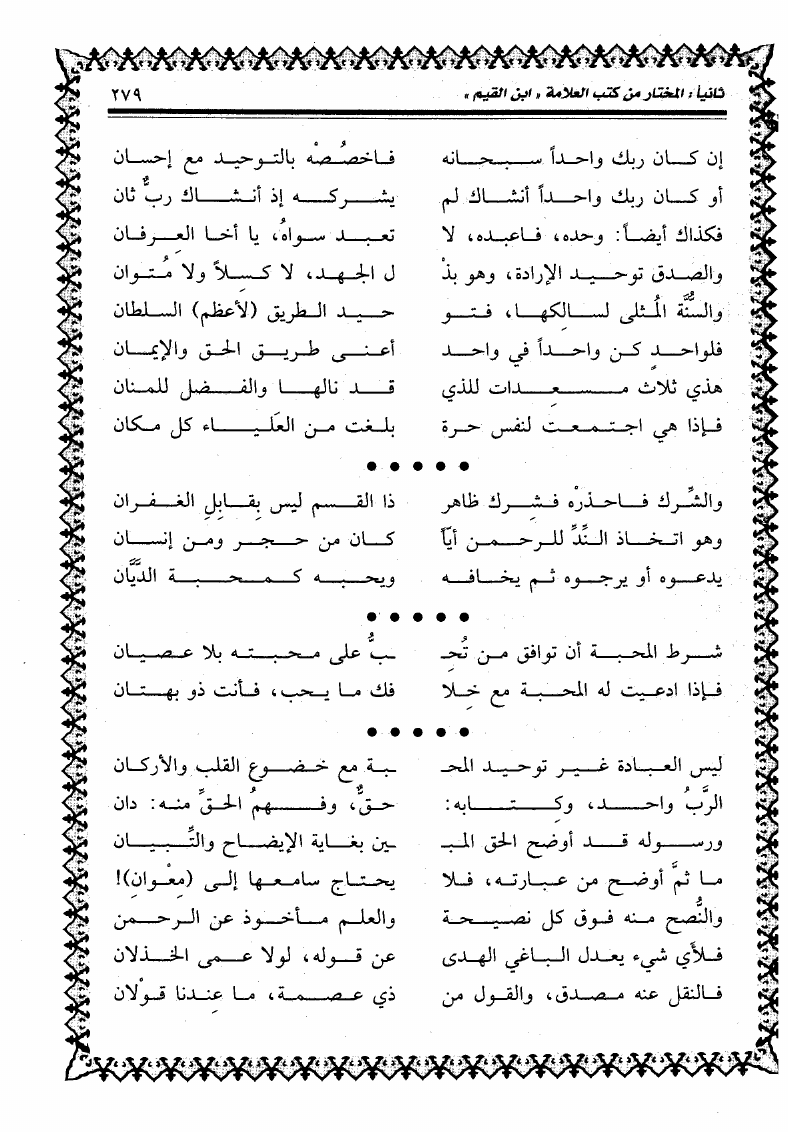 ثانياً : المختار من كتب العلامة « ابن القيم » ٢٧٩
إن كان ربك واحداً سبحانه فاخصُصْه بالتوحيد مع إحسان
أو كان ربك واحداً أنشاك لم يشركه إذ أنشاك ربٌّ ثان
فكذاك أيضاً: وحده، فاعبده، لا تعبد سواهُ، يا أخا العرفان
والصدق توحيد الإرادة، وهو بذْ ل الجهد، لا كسِلاً ولا مُتوان
والسُّنَّة المُثلى لسالِكها، فتو حيد الطريق (لأعظم) السلطان
فلواحدٍ كن واحداً في واحد أعني طريق الحق والإيمان
هذي ثلاث مسعِدات للذي قد نالها والفضل للمنان
فإذا هي اجتمعت لنفس حرة بلغت من العَلياء كل مكان
• • • • •
والشِّرك فاحذرْه فشِرك ظاهر ذا القسم ليس بِقابِلِ الغفران
وهو اتخاذ النِّدِّ للرحمن أيّاً كان من حجر ومن إنسان
يدعوه أو يرجوه ثم يخافه ويحبه كمحبة الديَّان
• • • • •
شرط المحبة أن توافق من تُحِـ ـبُّ على محبته بلا عصيان
فإذا ادعيت له المحبة مع خِلا فك ما يحب، فأنت ذو بهتان
• • • • •
ليس العبادة غير توحيد المحـ ـبة مع خضوع القلب والأركان
الرَّبُ واحد، وكتابه: حقٌّ، وفهمُ الحقِّ منه: دان
ورسوله قد أوضح الحق المبـ ـين بغاية الإيضاح والتِّبيان
ما ثمَّ أوضح من عبارته، فلا يحتاج سامعها إلى (مِعْوان)!
والنُّصح منه فوق كل نصيحة والعلم مأخوذ عن الرحمن
فلأي شيء يعدل الباغي الهدى عن قوله، لولا عمى الخذلان
فالنقل عنه مصدق، والقول من ذي عصمة، ما عِندنا قولْان